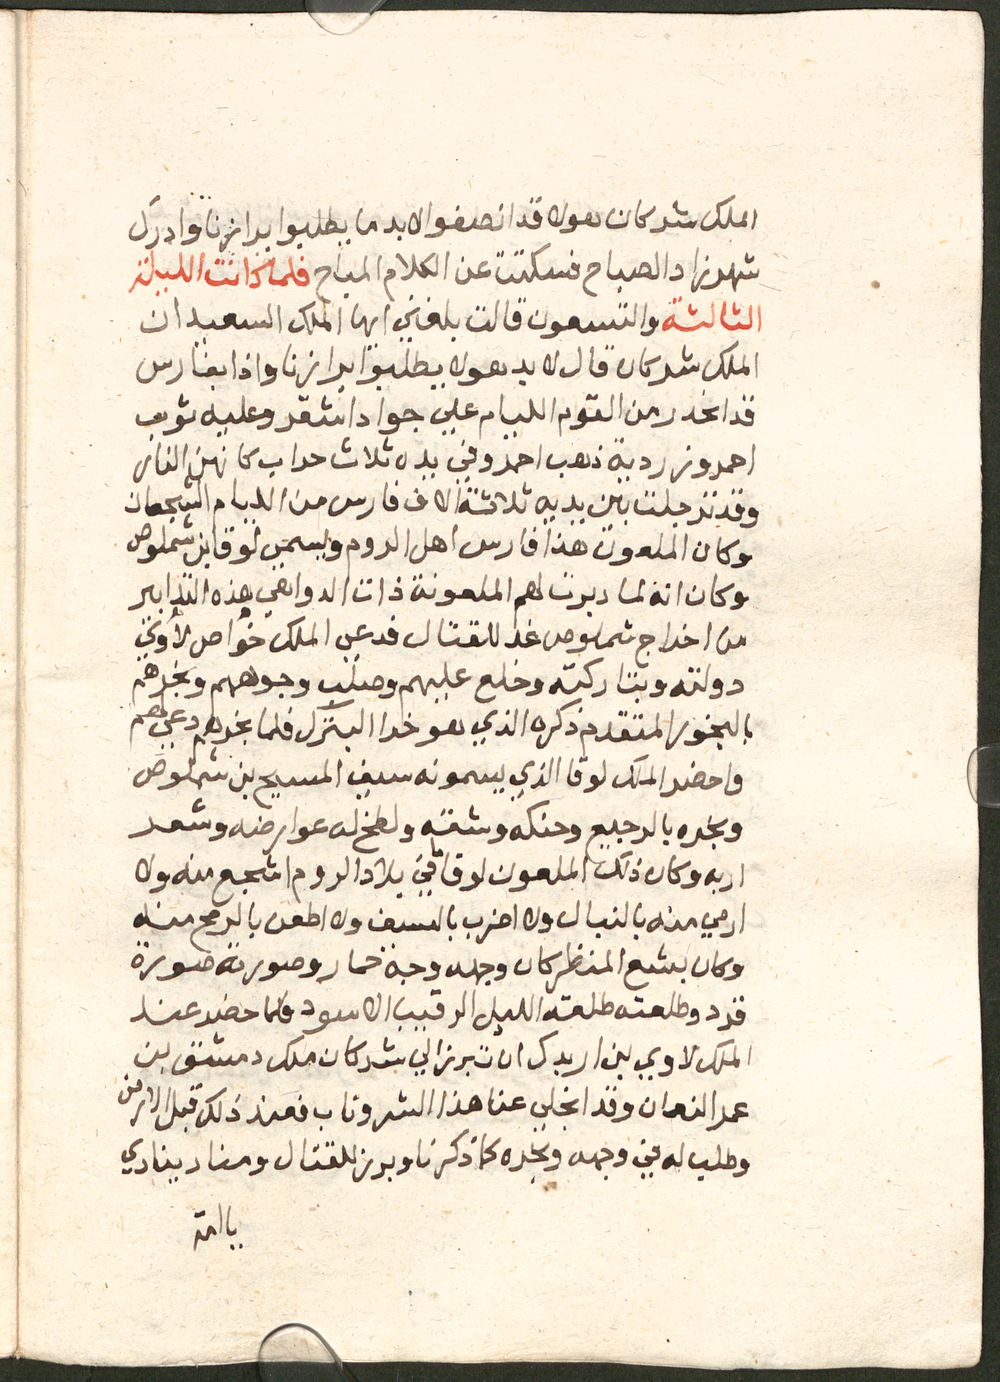 الملك شركان هولا قد انصفوا لا بد ما يطلبوا برازنا وادرك
شهرزاد الصباح فسكتت عن الكلام المباح فلما كانت الليلة
الثالثة والتسعون قالت بلغني ايها الملك السعيد ان
الملك شركان قال لا بد هولا يطلبوا برازنا واذا بفارس
قد انحدر من القوم الليام علي جواد اشقر وعليه ثوب
احمر وزردية ذهب احمر وفي يده ثلاث حراب كانهن النار
وقد ترجلت بين يديه ثلاثة الاف فارس من الليام الشجعان
وكان الملعون هذا فارس اهل الروم ويسمي لوقا بن شملوص
وكان انه لما دبرت لهم الملعونة ذات الدواهي هذه التدابير
من اخراج شملوص غد للقتال فدعي الملك خواص
دولته وبتاركته وخلع عليهم وصلب وجوههم وبخرهم
بالبخور المتقدم ذكره الذي هو خرا البترك فلما بخرهم دعي لهم
واحضر الملك لوقا الذي يسمونه سيف المسيح بن شملوص
وبخره بالرجيع وحنكه وشقته ولطخ له عوارضه وشعر
اربه وكان ذلك الملعون لوقا في بلاد الروم اشجع منه ولا
ارمي منه بالنبال ولا اضرب بالسيف ولا اطعن بالرمح منه
وكان بشع المنظر كان وجهه وجه حمار وصورته صورة
قرد وطلعته طلعته الليل الرقيب الاسود فلما حضر عند
الملك لاوي بن اريدك ان تبرز الي شركان ملك دمشق بن
عمر النعمان وقد انجلي عنا هذا الشر وناب فعند ذلك قبل الارض
وطلب له في وجهه وبخره كما ذكرنا وبرز للقتال ومناد ينادي
يا امة